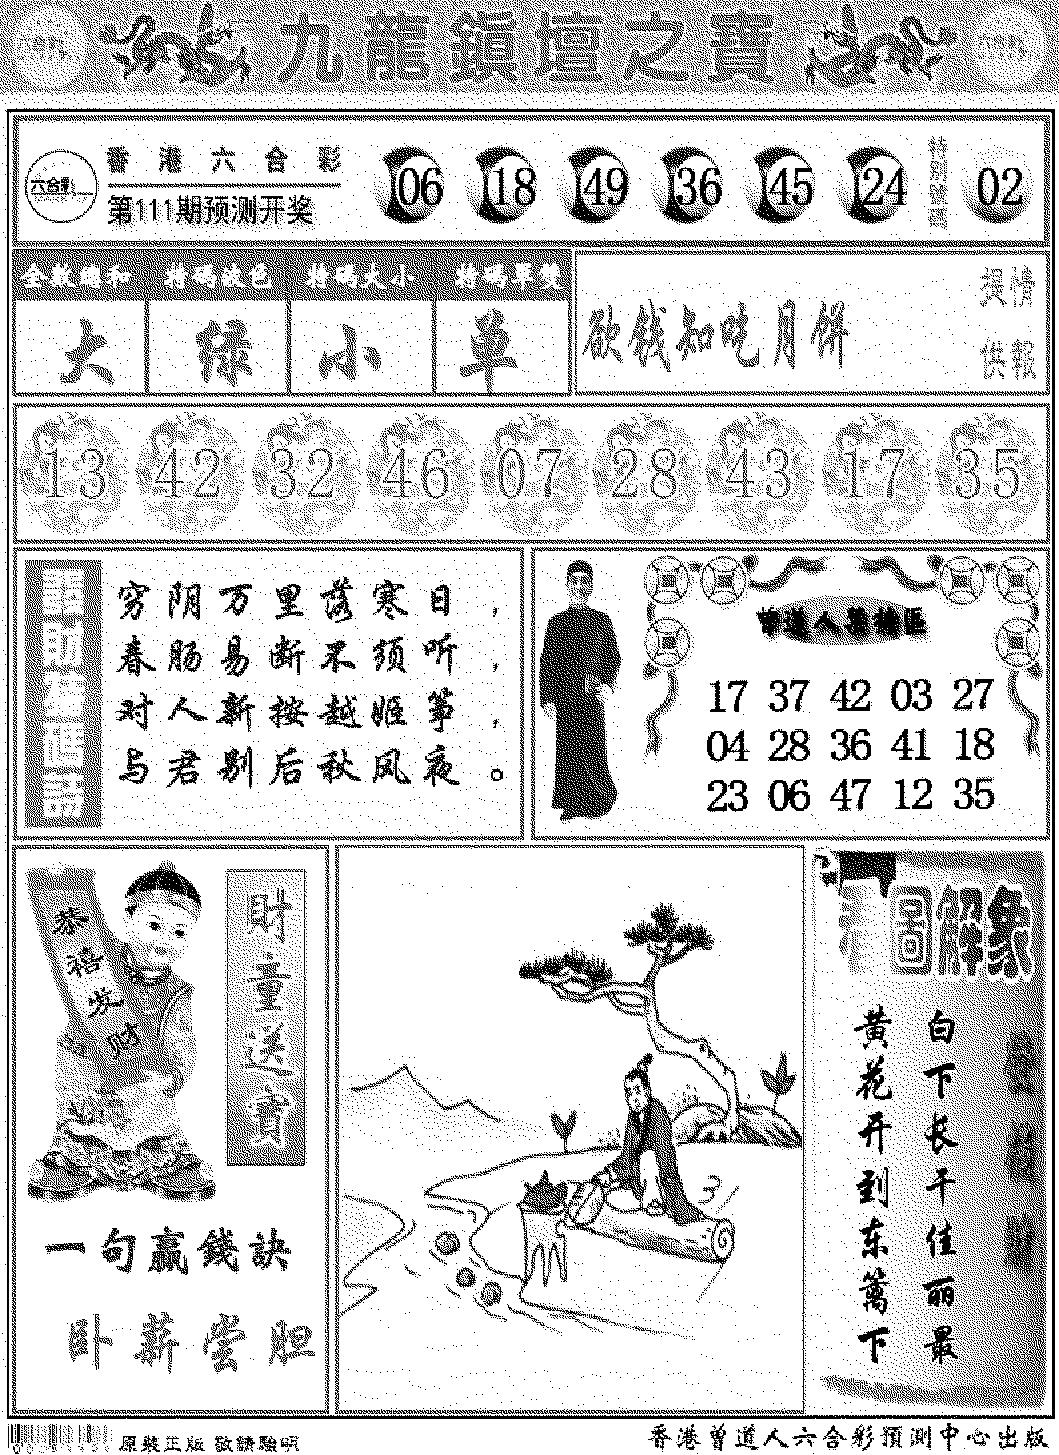 九龍鎮壇之寶
香港六合彩
六合彩
第111期预测开奖
06 18 49 36 45 24
特別號碼
02
全数總和 特碼波色 特碼大小 特碼單雙
大 绿 小 单
砍钱知吃月饼
提供
情報
13 42 32 46 07 28 43 17 35
穷阴万里落寒日，
春肠易断不须听，
对人新按越姬筝，
与君别后秋风夜。
17 37 42 03 27
04 28 36 41 18
23 06 47 12 35
恭禧发财
財童送寶
一句赢錢訣
卧薪尝胆
圖解象
白下长干佳丽最
黄花开到东篱下
原裝正版 敬請驗明
香港曾道人六合彩預測中心出版